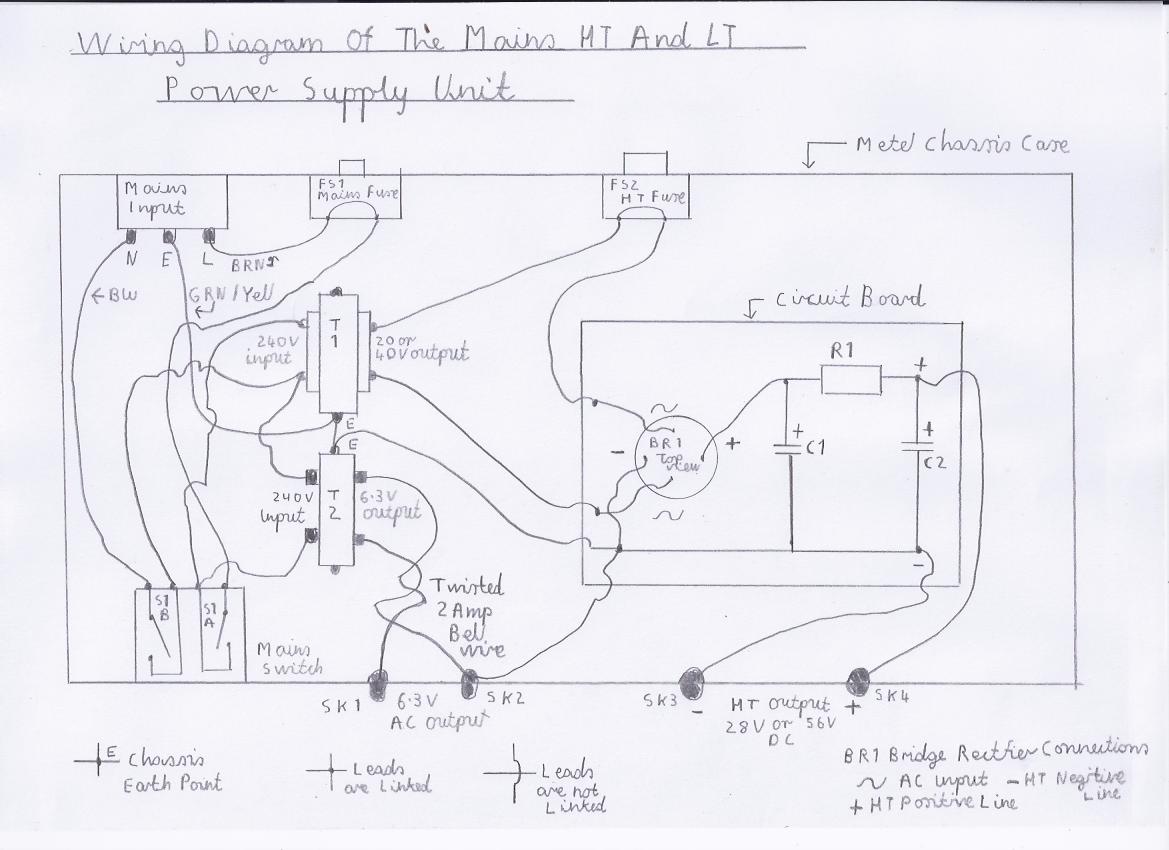 Wiring Diagram Of The Mains HT And LT
Power Supply Unit
Metel Chassis Case
Mains
Input
FS1
Mains Fuse
FS2
HT Fuse
N E L
BRN
←BLU
GRN/Yell
Circuit Board
240V
input
T
1
20 or
40V output
R1
+
E
E
~
BR1
Top
view
-
+
~
+
C1
+
C2
-
240V
Input
T
2
6.3V
output
Twisted
2 Amp
Bell
wire
S1
B
S1
A
Mains
Switch
SK1
6.3V
AC output
SK2
SK3
-
HT output
28V or 56V
DC
+
SK4
E Chassis
Earth Point
Leads
are Linked
Leads
are not
Linked
BR1 Bridge Rectfier Connections
~ AC input - HT Negitive
Line
+ HT Positive Line